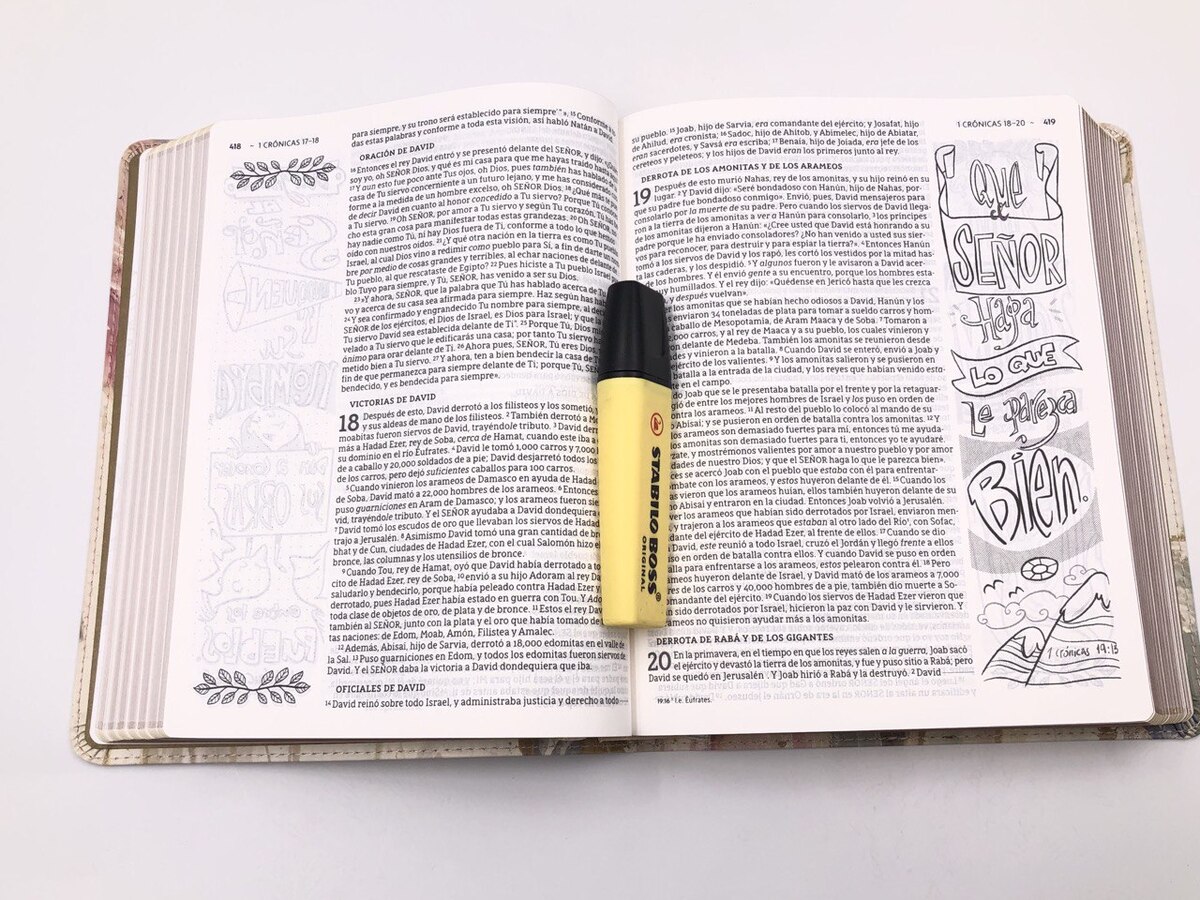 418 - 1 CRÓNICAS 17-18
para siempre, y su trono será establecido para siempre"». 15 Conforme a
das estas palabras y conforme a toda esta visión, así habló Natán a David.
ORACIÓN DE DAVID
16 Entonces el rey David entró y se presentó delante del SEÑOR, y dijo:
soy yo, oh SEÑOR Dios, y qué es mi casa para que me hayas traído hasta
17 Y aun esto fue poco ante Tus ojos, oh Dios, pues también has hablado de
casa de Tu siervo concerniente a un futuro lejano, y me has considerado
forme a la medida de un hombre excelso, oh SEÑOR Dios. 18 ¿Qué más te
de decir David en cuanto al honor concedido a Tu siervo? Porque Tú
a Tu siervo. 19 Oh SEÑOR, por amor a Tu siervo y según Tu corazón, Tú
cho esta gran cosa para manifestar todas estas grandezas. 20 Oh SEÑOR,
hay nadie como Tú, ni hay Dios fuera de Ti, conforme a todo lo que hemos
oído con nuestros oídos. 21 ¿Y qué otra nación en la tierra es como Tu pueblo
Israel, al cual Dios vino a redimir como pueblo para Sí, a fin de darte un
bre por medio de cosas grandes y terribles, al echar naciones de delante de
Tu pueblo, al que rescataste de Egipto? 22 Pues hiciste a Tu pueblo Israel
blo Tuyo para siempre, y Tú, SEÑOR, has venido a ser su Dios.
23 »Y ahora, SEÑOR, que la palabra que Tú has hablado acerca de Tu
vo y acerca de su casa sea afirmada para siempre. Haz según has
24 Y sea confirmado y engrandecido Tu nombre para siempre, al
SEÑOR de los ejércitos, el Dios de Israel, es Dios para Israel; y que la
Tu siervo David sea establecida delante de Ti". 25 Porque Tú, Dios
velado a Tu siervo que le edificarías una casa; por tanto Tu siervo
ánimo para orar delante de Ti. 26 Ahora pues, SEÑOR, Tú eres Dios,
metido bien a Tu siervo. 27 Y ahora, ten a bien bendecir la casa de
fin de que permanezca para siempre delante de Ti; porque Tú, SEÑOR,
bendecido, y es bendecida para siempre».
VICTORIAS DE DAVID
18 Después de esto, David derrotó a los filisteos y los sometió,
y sus aldeas de mano de los filisteos. 2 También derrotó a
moabitas fueron siervos de David, trayéndole tributo. 3 David
más a Hadad Ezer, rey de Soba, cerca de Hamat, cuando este iba a
su dominio en el río Éufrates. 4 David le tomó 1,000 carros y 7,000
de a caballo y 20,000 soldados de a pie; David desjarretó todos los
de los carros, pero dejó suficientes caballos para 100 carros.
5 Cuando vinieron los arameos de Damasco en ayuda de Hadad
de Soba, David mató a 22,000 hombres de los arameos. 6 Entonces
puso guarniciones en Aram de Damasco; y los arameos fueron
vid, trayéndole tributo. Y el SEÑOR ayudaba a David dondequiera
7 David tomó los escudos de oro que llevaban los siervos de Hadad
trajo a Jerusalén. 8 Asimismo David tomó una gran cantidad de
bhat y de Cun, ciudades de Hadad Ezer, con el cual Salomón hizo el
bronce, las columnas y los utensilios de bronce.
9 Cuando Tou, rey de Hamat, oyó que David había derrotado a
cito de Hadad Ezer, rey de Soba, 10 envió a su hijo Adoram al rey
saludarlo y bendecirlo, porque había peleado contra Hadad Ezer y
derrotado, pues Hadad Ezer había estado en guerra con Tou. Y
toda clase de objetos de oro, de plata y de bronce. 11 Estos el rey
también al SEÑOR, junto con la plata y el oro que había tomado de
tas naciones: de Edom, Moab, Amón, Filistea y Amalec.
12 Además, Abisai, hijo de Sarvia, derrotó a 18,000 edomitas en el valle de
la Sal. 13 Puso guarniciones en Edom, y todos los edomitas fueron siervos de
David. Y el SEÑOR daba la victoria a David dondequiera que iba.
OFICIALES DE DAVID
14 David reinó sobre todo Israel, y administraba justicia y derecho a todo
1 CRÓNICAS 18-20 - 419
su pueblo. 15 Joab, hijo de Sarvia, era comandante del ejército; y Josafat, hijo
de Ahilud, era cronista; 16 Sadoc, hijo de Ahitob, y Abimelec, hijo de Abiatar,
eran sacerdotes, y Savsá era escriba; 17 Benaía, hijo de Joiada, era jefe de los
cereteos y peleteos; y los hijos de David eran los primeros junto al rey.
DERROTA DE LOS AMONITAS Y DE LOS ARAMEOS
19 Después de esto murió Nahas, rey de los amonitas, y su hijo reinó en su
lugar. 2 Y David dijo: «Seré bondadoso con Hanún, hijo de Nahas, por-
que su padre fue bondadoso conmigo». Envió, pues, David mensajeros para
consolarlo por la muerte de su padre. Pero cuando los siervos de David llega-
ron a la tierra de los amonitas a ver a Hanún para consolarlo, 3 los príncipes
de los amonitas dijeron a Hanún: «¿Cree usted que David está honrando a su
padre porque le ha enviado consoladores? ¿No han venido a usted sus sier-
vos para reconocer, para destruir y para espiar la tierra?». 4 Entonces Hanún
tomó a los siervos de David y los rapó, les cortó los vestidos por la mitad has-
ta las caderas, y los despidió. 5 Y algunos fueron y le avisaron a David acer-
de los hombres. Y él envió gente a su encuentro, porque los hombres esta-
muy humillados. Y el rey dijo: «Quédense en Jericó hasta que les crezca
y después vuelvan».
los amonitas que se habían hecho odiosos a David, Hanún y los
enviaron 34 toneladas de plata para tomar a sueldo carros y hom-
caballo de Mesopotamia, de Aram Maaca y de Soba. 7 Tomaron a
carros, y al rey de Maaca y a su pueblo, los cuales vinieron y
delante de Medeba. También los amonitas se reunieron desde
y vinieron a la batalla. 8 Cuando David se enteró, envió a Joab y
ejército de los valientes. 9 Y los amonitas salieron y se pusieron en
batalla a la entrada de la ciudad, y los reyes que habían venido esta-
en el campo.
Joab que se le presentaba batalla por el frente y por la retaguar-
gió de entre los mejores hombres de Israel y los puso en orden de
contra los arameos. 11 Al resto del pueblo lo colocó al mando de su
Abisai; y se pusieron en orden de batalla contra los amonitas. 12 Y
los arameos son demasiado fuertes para mí, entonces tú me ayuda-
amonitas son demasiado fuertes para ti, entonces yo te ayudaré.
te, y mostrémonos valientes por amor a nuestro pueblo y por amor
dades de nuestro Dios; y que el SEÑOR haga lo que le parezca bien».
se acercó Joab con el pueblo que estaba con él para enfrentar-
combate con los arameos, y estos huyeron delante de él. 15 Cuando los
vieron que los arameos huían, ellos también huyeron delante de su
Abisai y entraron en la ciudad. Entonces Joab volvió a Jerusalén.
los arameos que habían sido derrotados por Israel, enviaron men-
y trajeron a los arameos que estaban al otro lado del Río¹, con Sofac,
del ejército de Hadad Ezer, al frente de ellos. 17 Cuando se dio
este reunió a todo Israel, cruzó el Jordán y llegó frente a ellos
en orden de batalla contra ellos. Y cuando David se puso en orden
para enfrentarse a los arameos, estos pelearon contra él. 18 Pero
huyeron delante de Israel, y David mató de los arameos a 7,000
de los carros y 40,000 hombres de a pie, también dio muerte a So-
comandante del ejército. 19 Cuando los siervos de Hadad Ezer vieron que
sido derrotados por Israel, hicieron la paz con David y le sirvieron. Y
no quisieron ayudar más a los amonitas.
DERROTA DE RABÁ Y DE LOS GIGANTES
20 En la primavera, en el tiempo en que los reyes salen a la guerra, Joab sacó
el ejército y devastó la tierra de los amonitas, y fue y puso sitio a Rabá; pero
David se quedó en Jerusalén. Y Joab hirió a Rabá y la destruyó. 2 David
19:16 ¹ I.e. Éufrates.
Que
el
SEÑOR
Haga
LO QUE
Le Parezca
Bien.
1 Crónicas 19:13
STABILO BOSS®
ORIGINAL